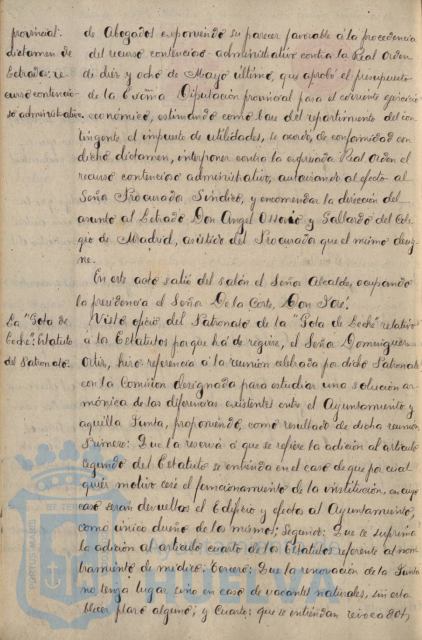 provincial:
dictamen de
Letrados: re-
curso contencio-
so administrativo.
de Abogados exponiendo su parecer favorable á la procedencia
del recurso contencioso-administrativo contra la Real Orden
de diez y ocho de Mayo último, que aprobó el presupuesto
de la Excma Diputación provincial para el corriente ejercicio
económico, estimando como base del repartimiento del con-
tingente el impuesto de utilidades, se acordó, de conformidad con
dicho dictamen, interponer contra la expresada Real Orden el
recurso contencioso administrativo, autorizando al efecto al
Señor Procurador Síndico, y encomendar la dirección del
asunto al Letrado Don Angel Ossorio y Gallardo del Cole-
gio de Madrid, asistido del Procurador que el mismo desig-
ne.
En este acto salió del salón el Señor Alcalde, ocupando
la presidencia el Señor De la Corte, Don José.
La "Gota de
Leche". Estatuto
del Patronato.
Visto oficio del Patronato de la "Gota de Leche" relativo
á los Estatutos porque há de regirse, el Señor Dominguez
Ortiz, hizo referencia á la reunión celebrada por dicho Patronato
con la Comision designada para estudiar una solución ar-
mónica de las diferencias existentes entre el Ayuntamiento y
aquella Junta, proponiendo, como resultado de dicha reunión
Primero: Que la reserva á que se refiere la adición al artículo
segundo del Estatuto se entienda en el caso de que por cual-
quier motivo cese el funcionamiento de la institución, en cuyo
caso serán devueltos el Edificio y efectos al Ayuntamiento,
como único dueño de los mismos; Segundo: Que se suprima
la adición al artículo cuarto de los Estatutos referente al nom-
bramiento de médico: Tercero: Que la renovación de la Junta
no tenga lugar sino en caso de vacantes naturales, sin esta-
blecer plazo alguno; y Cuarto: que se entiendan revocados,
Ayuntamiento de
HUELVA
PORTUS MARIS